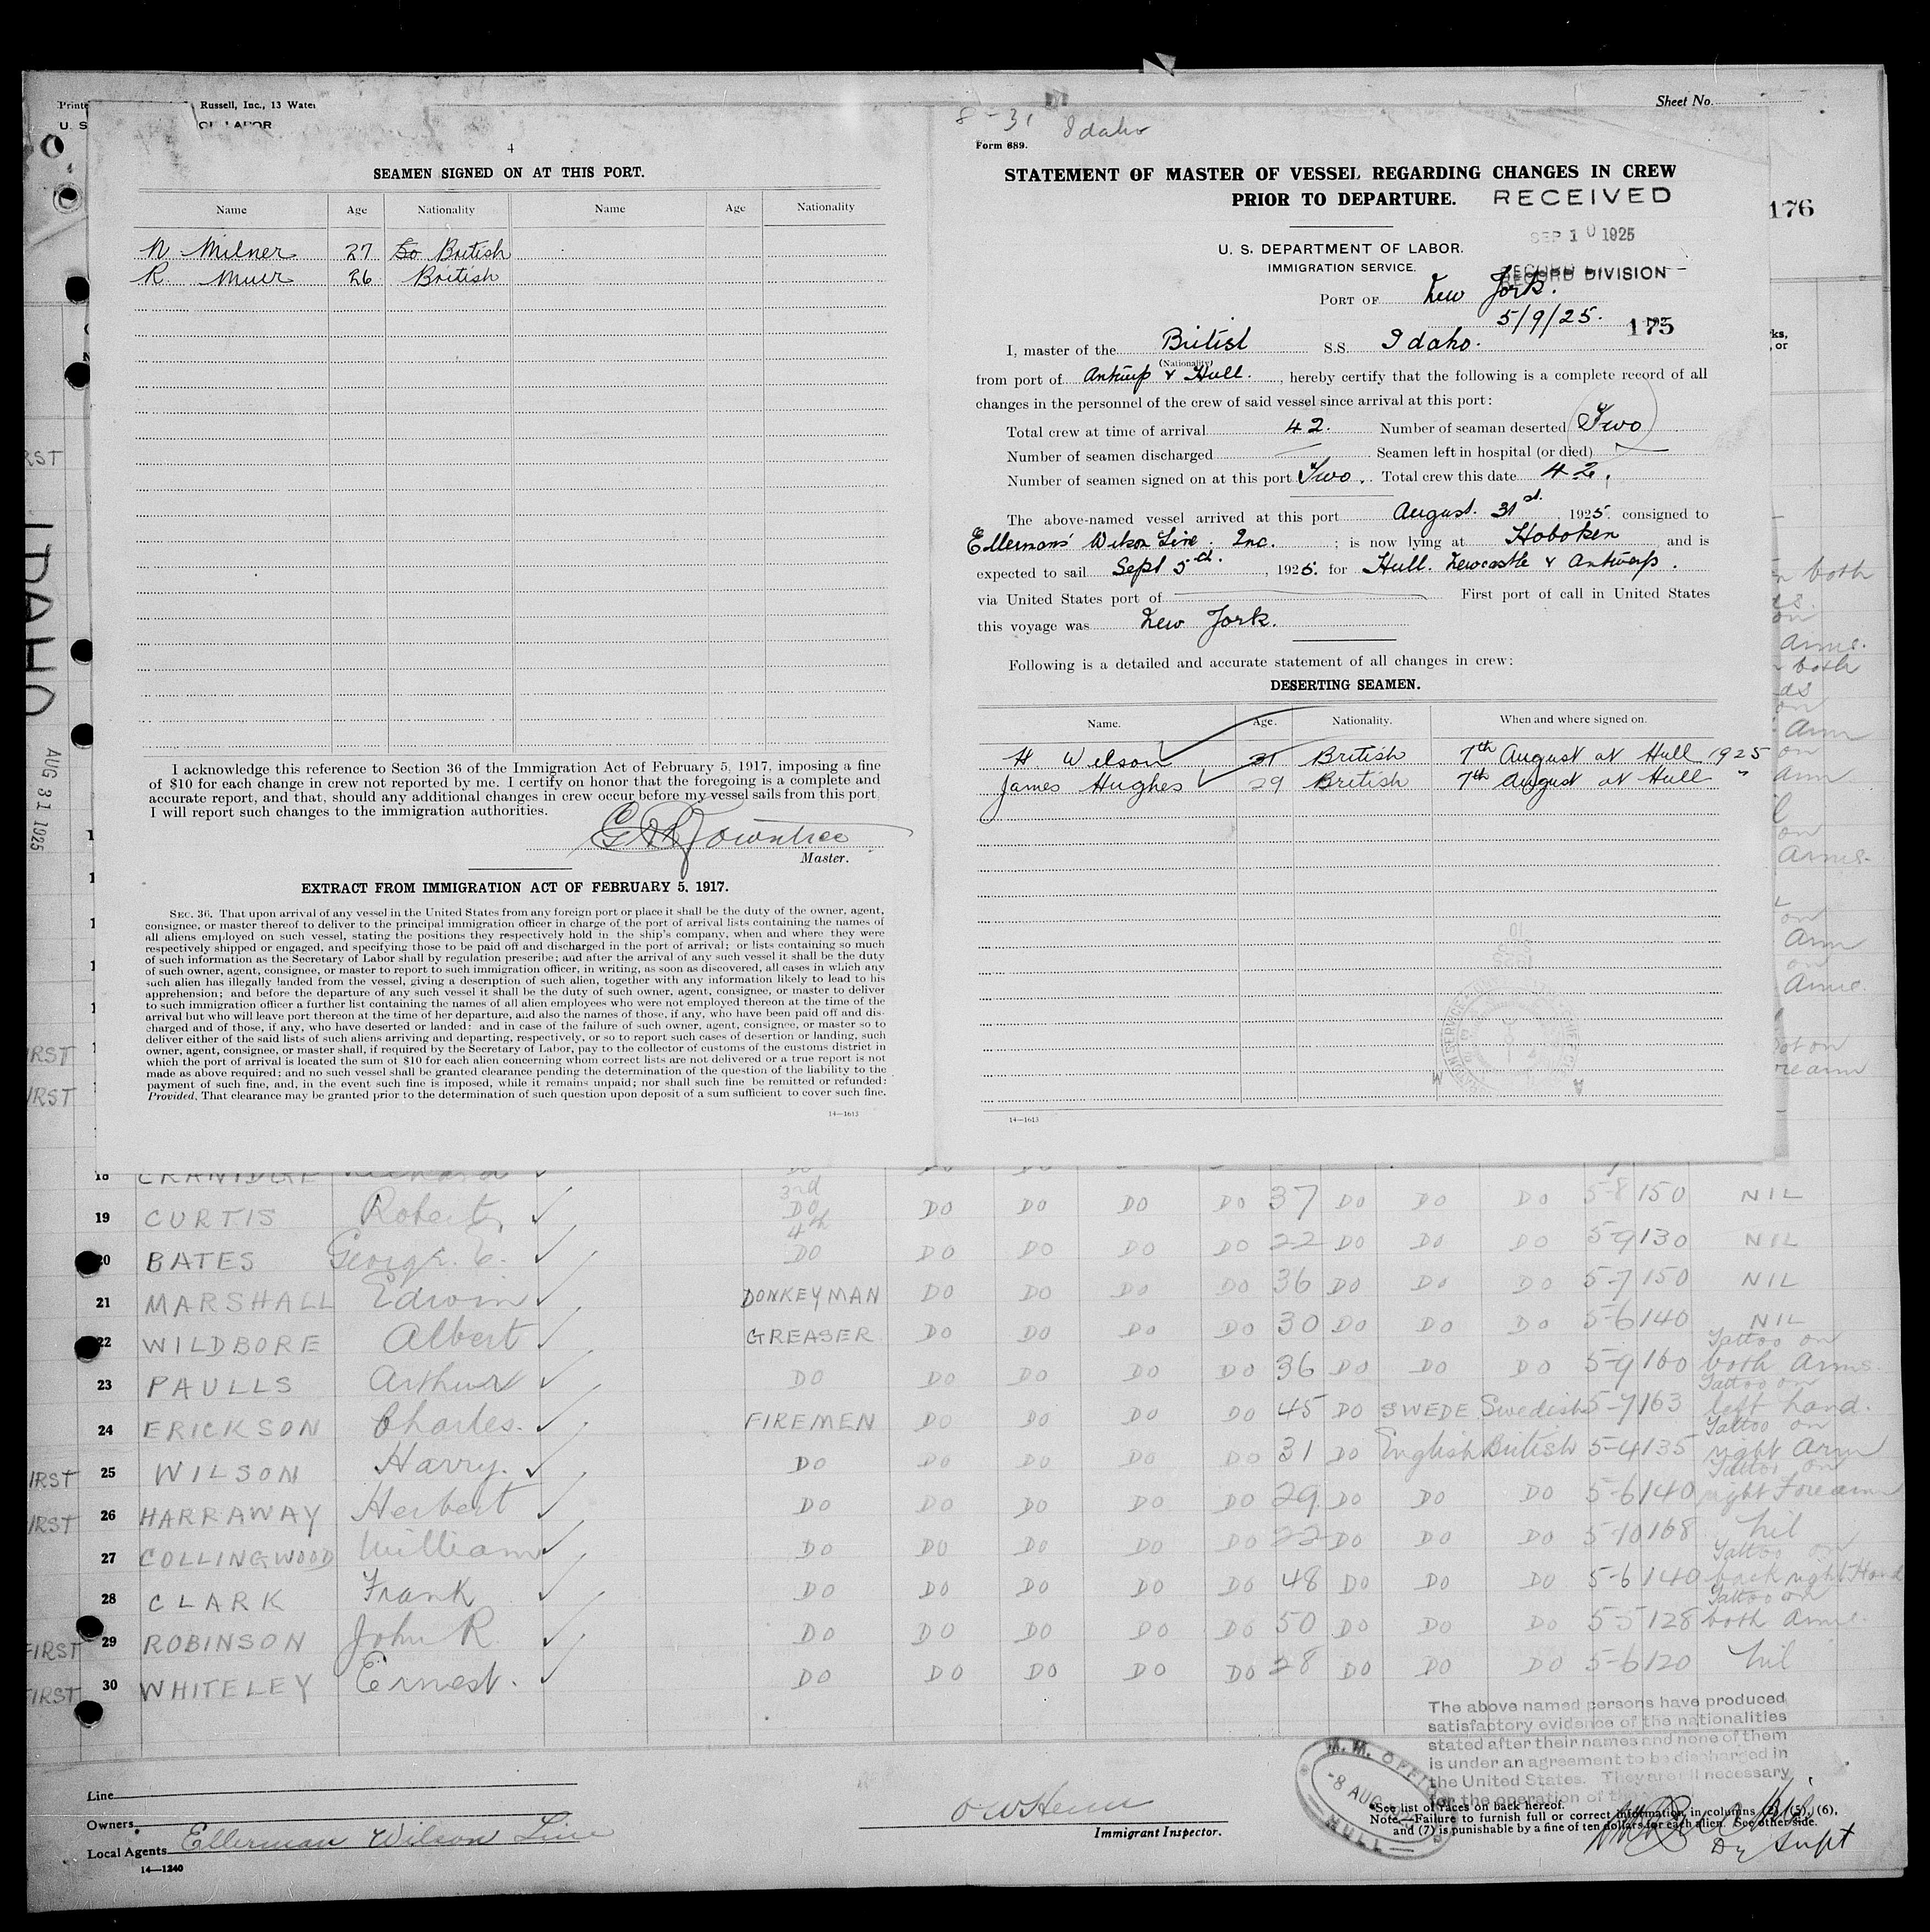 Printe Russell, Inc., 13 Water
U. S OF LABOR
Sheet No.
4
SEAMEN SIGNED ON AT THIS PORT.
Name Age Nationality Name Age Nationality
N. Milner 27 So British
R. Muir 26 British
I acknowledge this reference to Section 36 of the Immigration Act of February 5, 1917, imposing a fine
of $10 for each change in crew not reported by me. I certify on honor that the foregoing is a complete and
accurate report, and that, should any additional changes in crew occur before my vessel sails from this port,
I will report such changes to the immigration authorities.
Master.
EXTRACT FROM IMMIGRATION ACT OF FEBRUARY 5, 1917.
SEC. 36. That upon arrival of any vessel in the United States from any foreign port or place it shall be the duty of the owner, agent,
consignee, or master thereof to deliver to the principal immigration officer in charge of the port of arrival lists containing the names of
all aliens employed on such vessel, stating the positions they respectively hold in the ship's company, when and where they were
respectively shipped or engaged, and specifying those to be paid off and discharged in the port of arrival; or lists containing so much
of such information as the Secretary of Labor shall by regulation prescribe; and after the arrival of any such vessel it shall be the duty
of such owner, agent, consignee, or master to report to such immigration officer, in writing, as soon as discovered, all cases in which any
such alien has illegally landed from the vessel, giving a description of such alien, together with any information likely to lead to his
apprehension; and before the departure of any such vessel it shall be the duty of such owner, agent, consignee, or master to deliver
to such immigration officer a further list containing the names of all alien employees who were not employed thereon at the time of the
arrival but who will leave port thereon at the time of her departure, and also the names of those, if any, who have been paid off and dis-
charged and of those, if any, who have deserted or landed; and in case of the failure of such owner, agent, consignee, or master so to
deliver either of the said lists of such aliens arriving and departing, respectively, or so to report such cases of desertion or landing, such
owner, agent, consignee, or master shall, if required by the Secretary of Labor, pay to the collector of customs of the customs district in
which the port of arrival is located the sum of $10 for each alien concerning whom correct lists are not delivered or a true report is not
made as above required; and no such vessel shall be granted clearance pending the determination of the question of the liability to the
payment of such fine, and, in the event such fine is imposed, while it remains unpaid; nor shall such fine be remitted or refunded:
Provided, That clearance may be granted prior to the determination of such question upon deposit of a sum sufficient to cover such fine.
14—1613
8-31 Idaho
Form 689.
STATEMENT OF MASTER OF VESSEL REGARDING CHANGES IN CREW
PRIOR TO DEPARTURE.
RECEIVED
SEP 10 1925
RECORD DIVISION
U. S. DEPARTMENT OF LABOR.
IMMIGRATION SERVICE.
PORT OF New York.
5/9/25. 175
I, master of the British S.S. Idaho.
(Nationality)
from port of Antwerp & Hull., hereby certify that the following is a complete record of all
changes in the personnel of the crew of said vessel since arrival at this port:
Total crew at time of arrival 42. Number of seaman deserted Two
Number of seamen discharged Seamen left in hospital (or died)
Number of seamen signed on at this port Two. Total crew this date 42.
The above-named vessel arrived at this port August. 31st. 1925. consigned to
Ellerman's Wilson Line. Inc. ; is now lying at Hoboken and is
expected to sail Sept 5th., 1925. for Hull. Newcastle & Antwerp.
via United States port of First port of call in United States
this voyage was New York.
Following is a detailed and accurate statement of all changes in crew:
DESERTING SEAMEN.
Name. Age. Nationality. When and where signed on.
H. Wilson 31 British 7th August at Hull 1925
James Hughes 29 British 7th August at Hull "
14—1613
176
IDAHO
AUG 31 1925
19 CURTIS Robert 3rd DO DO DO DO DO 37 DO DO DO 5-8 150 NIL
20 BATES George. E. 4th DO DO DO DO DO 22 DO DO DO 5-9 130 NIL
21 MARSHALL Edwin DONKEYMAN DO DO DO DO 36 DO DO DO 5-7 150 NIL
22 WILDBORE Albert GREASER DO DO DO DO 30 DO DO DO 5-6 140 NIL
23 PAULLS Arthur DO DO DO DO DO 36 DO DO DO 5-9 160 Tattoo on both Arms
24 ERICKSON Charles. FIREMEN DO DO DO DO 45 DO SWEDE Swedish 5-7 163 Tattoo on left hand.
25 WILSON Harry. DO DO DO DO DO 31 DO English British 5-4 135 Tattoo on right Arm
26 HARRAWAY Herbert DO DO DO DO DO 29 DO DO DO 5-6 140 Tattoo on right Forearm
27 COLLINGWOOD William DO DO DO DO DO 22 DO DO DO 5-10 168 Nil
28 CLARK Frank DO DO DO DO DO 48 DO DO DO 5-6 140 Tattoo on back right Hand
29 ROBINSON John R. DO DO DO DO DO 50 DO DO DO 5-5 128 Tattoo on both arms.
30 WHITELEY Ernest. DO DO DO DO DO 28 DO DO DO 5-6 120 Nil
The above named persons have produced
satisfactory evidence of the nationalities
stated after their names and none of them
is under an agreement to be discharged in
the United States. They are all necessary
for the operation of
M.M. OFFICE
-8 AUG
HULL
Line
Owners
Local Agents Ellerman Wilson Line
14—1240
Immigrant Inspector.
*See list of races on back hereof.
Note.—Failure to furnish full or correct information in columns (2), (5), (6),
and (7) is punishable by a fine of ten dollars for each alien. See other side.